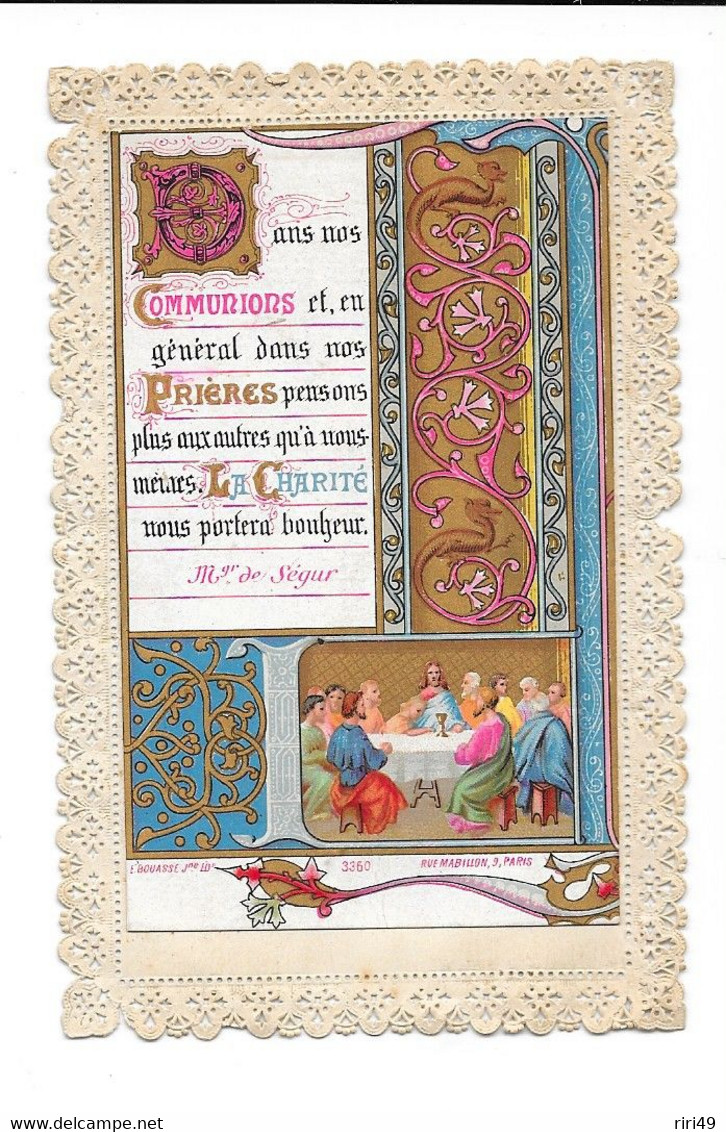 Dans nos
COMMUNIONS et, en
général dans nos
PRIÈRES pensons
plus aux autres qu'à nous-
mêmes. LA CHARITÉ
nous portera bonheur.
Mgr de Ségur
E. BOUASSE Jne Edr
3360
RUE MABILLON, 9, PARIS
delcampe.net
riri49